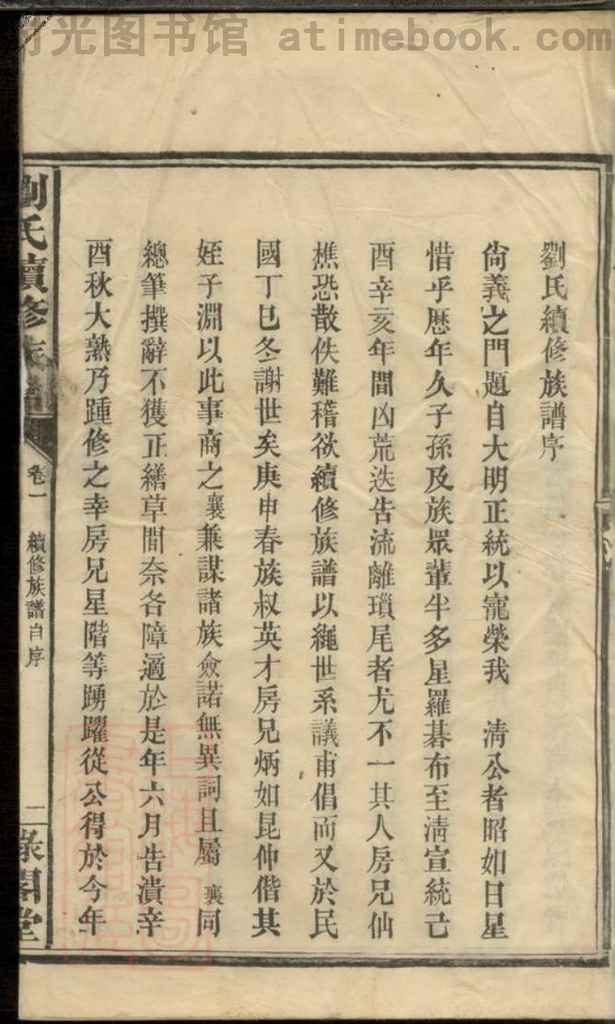 时光图书馆 atimebook.com
劉氏續修族譜序
尙義之門題自大明正統以寵榮我　淸公者昭如日星
惜乎歷年久子孫及族眾輩半多星羅碁布至淸宣統己
酉辛亥年間凶荒迭告流離瑣尾者尤不一其人房兄仙
樵恐散佚難稽欲續修族譜以繩世系議甫倡而又於民
國丁巳冬謝世矣庚申春族叔英才房兄炳如昆仲偕其
姪子淵以此事商之襄兼謀諸族僉諾無異詞且屬　襄同
總筆撰辭不獲正繕草間奈各障適於是年六月告潰辛
酉秋大熟乃踵修之幸房兄星階等踴躍從公得於今年
劉氏續修族譜
卷一
續修族譜自序
二
祿閣堂